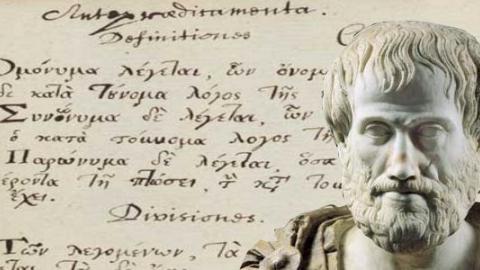 Antepraedicamenta.
Definitiones
Ὁμόνυμα λέγεται, ὧν ὄνομ
δὲ κατὰ Τὔνομα λόγος τῆς
Συνώνυμα δὲ λέγεται, ὧν
ὁ κατὰ τοὔνομα λογος τῆ
Παρώνυμα δὲ λέγεται, ὅσα
έροντα τῇ πτώσει, τὴ
ἔχει.
Divisiones.
Τῶν λεγομένων, τὰ